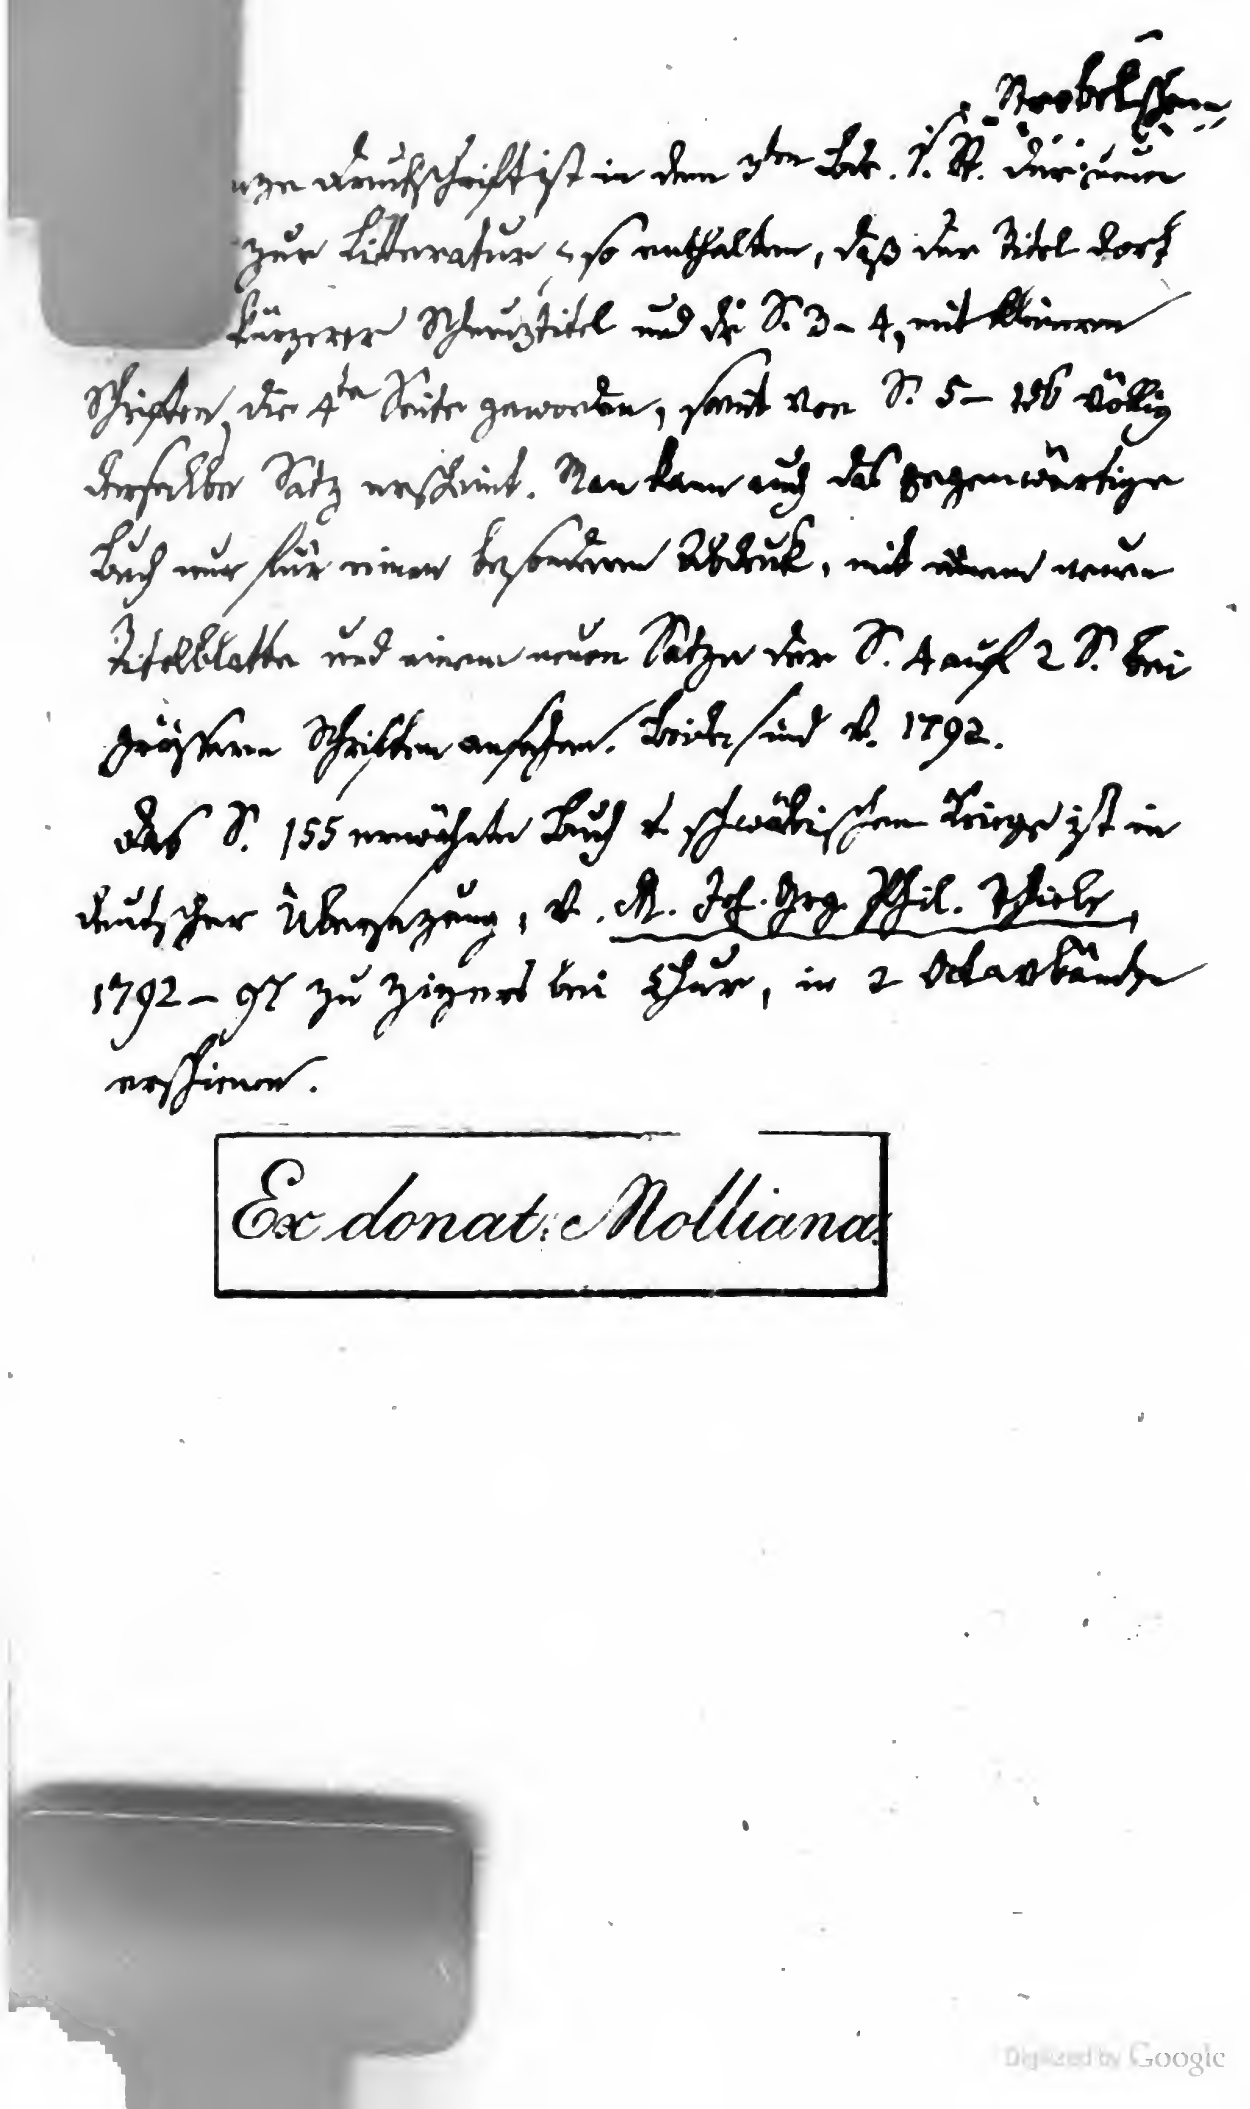 Strobelschen
nze Druckschrift ist in dem 3ten Bde. 1. St. der neuen
zur Litteratur so enthalten, daß der Titel dort
kürzerer Schmuztitel und die S. 3-4, mit kleineren
Schriften, die 4te Seite geworden, somit von S. 5-156 völlig
derselbe Satz erscheint. Man kann auch das gegenwärtige
Buch nur für einen besonderen Abdruk, mit einem neuen
Titelblatte und einem neuen Satze der S. 4 auf 2 S. bei
grössern Schriften ansehen. Beide sind v. 1792.
Das S. 155 erwähnte Buch v. schwäbischen Kriege ist in
deutscher Übersezung, v. M. Joh. Grg. Phil. Thiele,
1792-97 zu Zizers bei Chur, in 2 Octavbändche
erschienen.
Ex donat. Molliana.
Digitized by Google